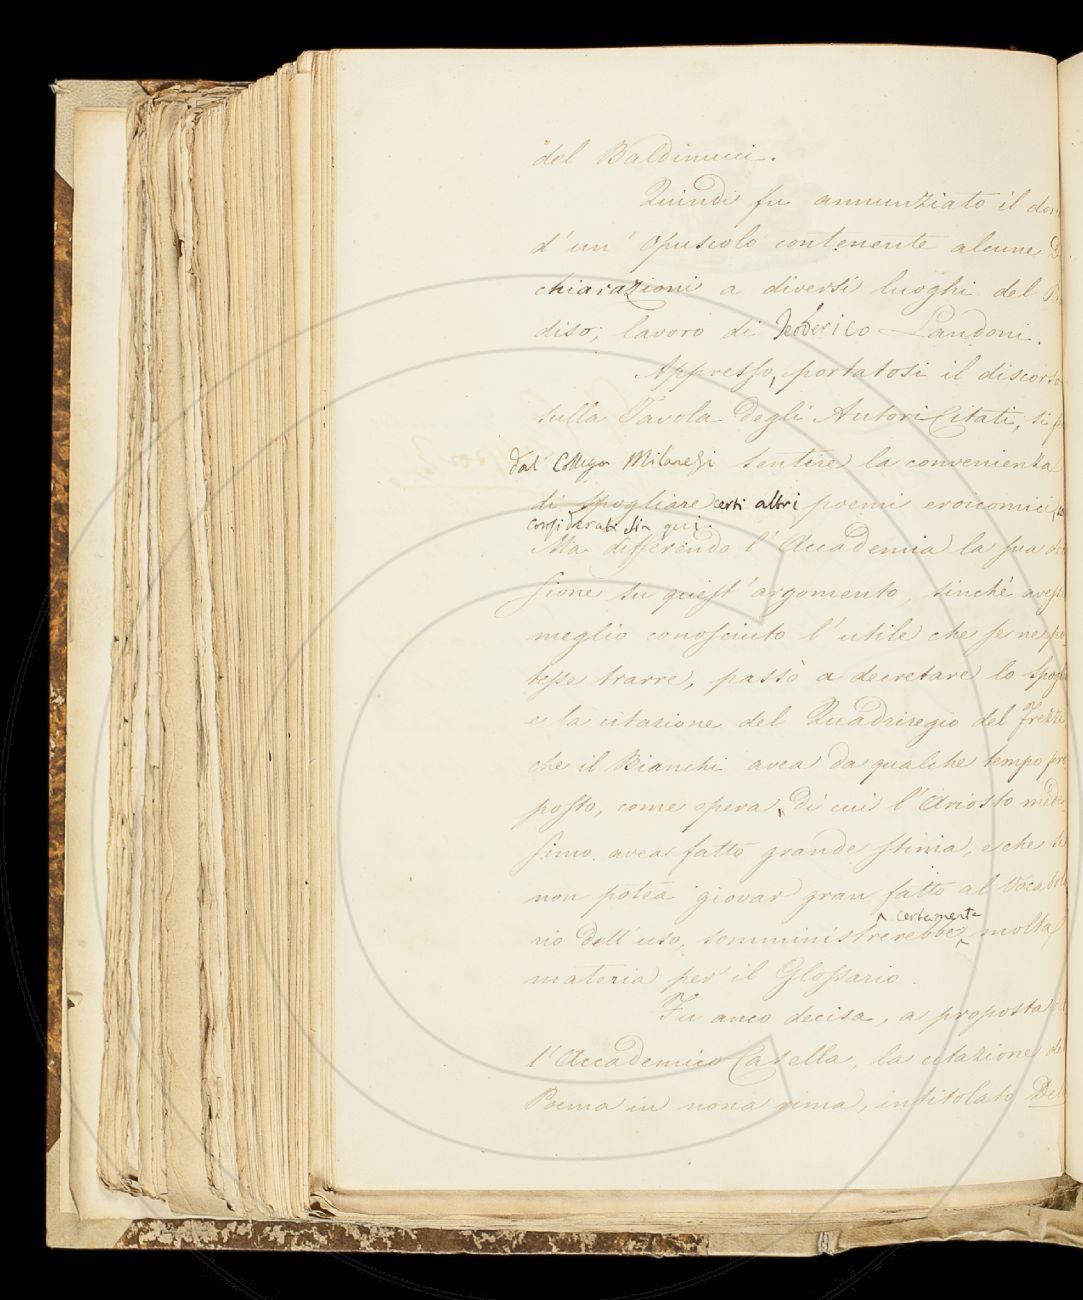 del Baldinucci.
Quindi fu annunziato il don
d'un' Opuscolo contenente alcune D
chiarazioni a diversi luoghi del
diso; lavoro di Teoderico Landoni.
Appresso, portatosi il discorso
sulla Tavola degli Autori Citati, si
dal Collega Milanesi sentire la convenienza
di spogliare certi altri poemi eroicomici,
considerati sin qui.
Ma differendo l'Accademia la sua
sione su quest'argomento, sinchè avess
meglio conosciuto l'utile che se ne po
tesse trarre, passò a decretare lo spogl
e la citazione del Quadriregio del Frezzi
che il Bianchi avea da qualche tempo pro
posto, come opera, di cui l'Ariosto mede
simo avea fatto grande stima, e che se
non potea giovar gran fatto al Vocabola
rio dell'uso, somministrerebbe certamente molta
materia per il Glossario.
Fu anco decisa, a proposta
l'Accademico Casella, la citazione de
Poema in nona rima, intitolato Del